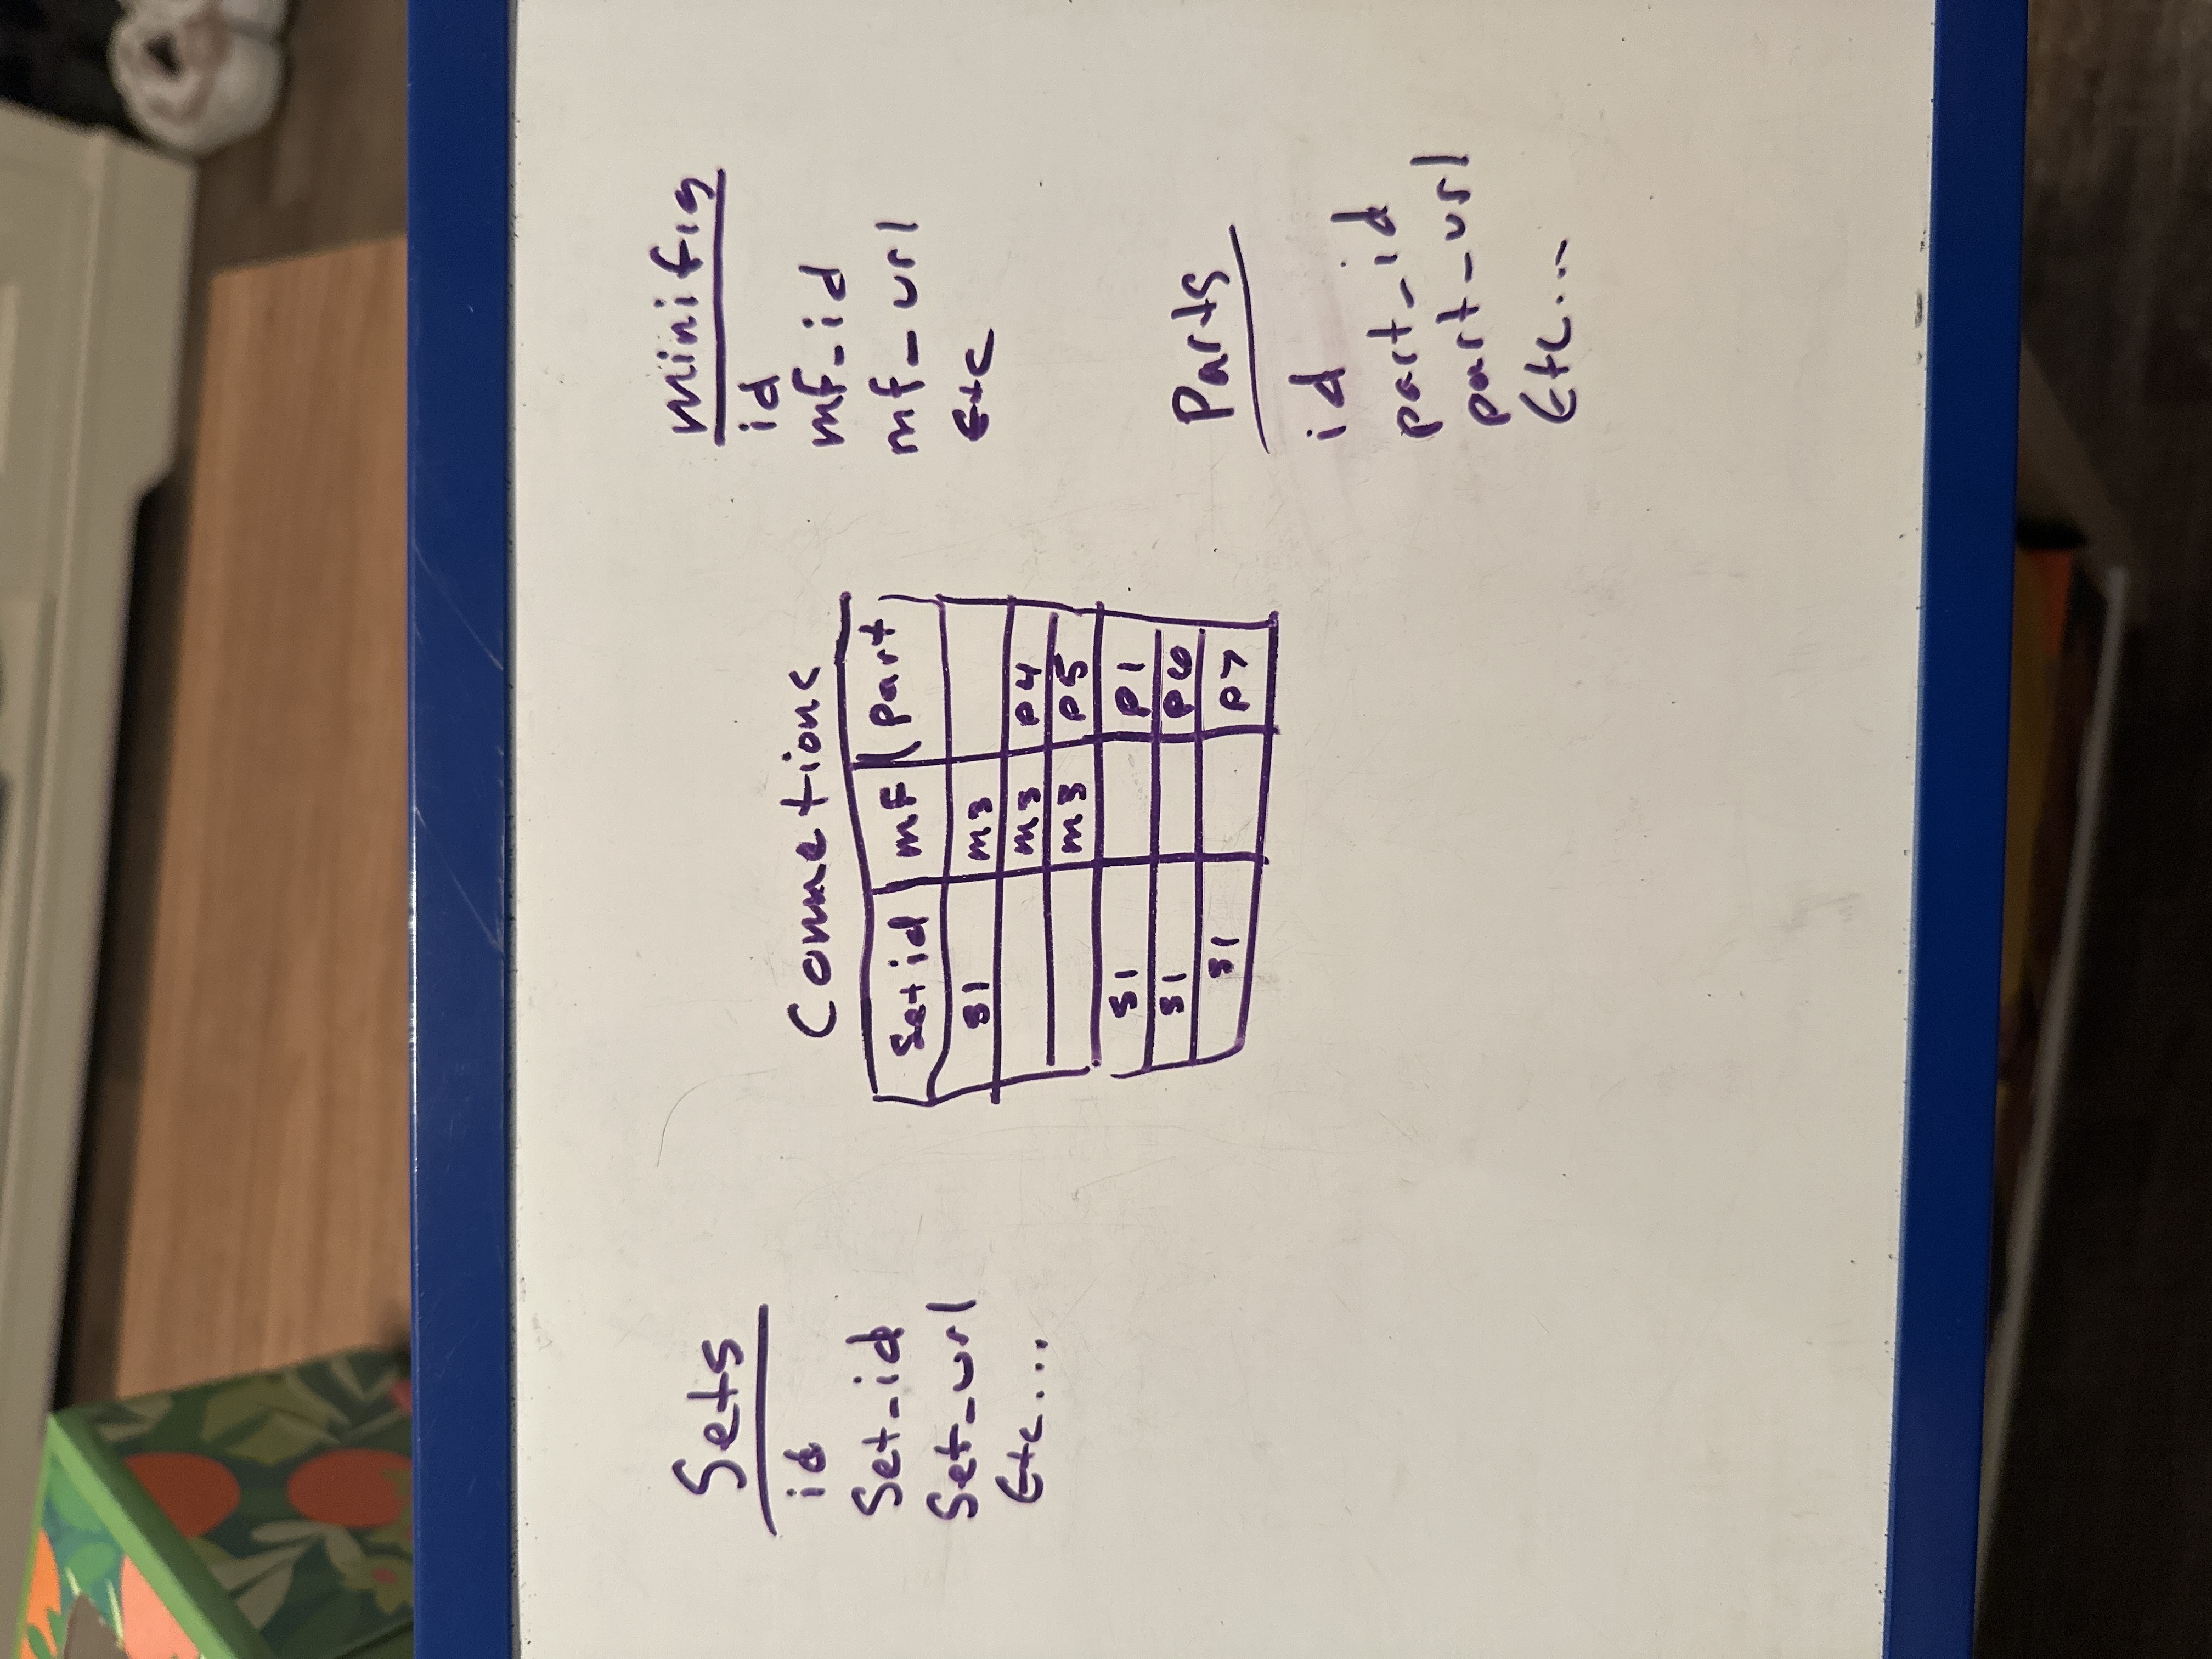 Sets
id
Set_id
Set_url
Etc...
Connetions
Set id mf part
S1 m3
m3 p4
m3 p5
S1 p1
S1 p6
S1 p7
minifig
id
mf_id
mf_url
Etc
Parts
id
part_id
part_url
Etc...